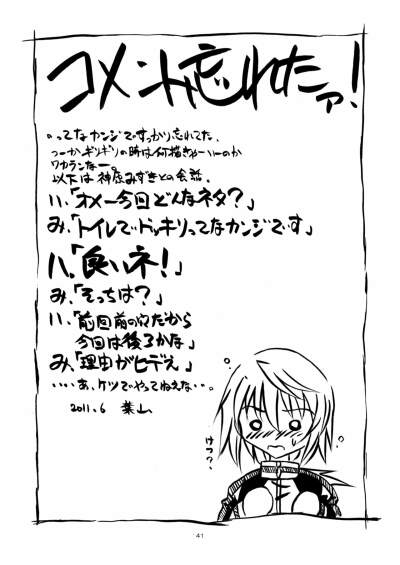 コメント忘れたァ!
ってなカンジですっかり忘れてた。
つーかギリギリの時は何描きゃいーのか
ワカランなー。
以下は神原みずきとの会話。
ハ、「オメー今回どんなネタ?」
み、「トイレでドッキリってなカンジです」
ハ、「良いネ!」
み、「そっちは?」
ハ、「前回前の穴だから
今回は後ろかな」
み、「理由がヒデぇ」
・・・・あ、ケツでやってねえな・・。
2011.6 葉山
けつ??
41